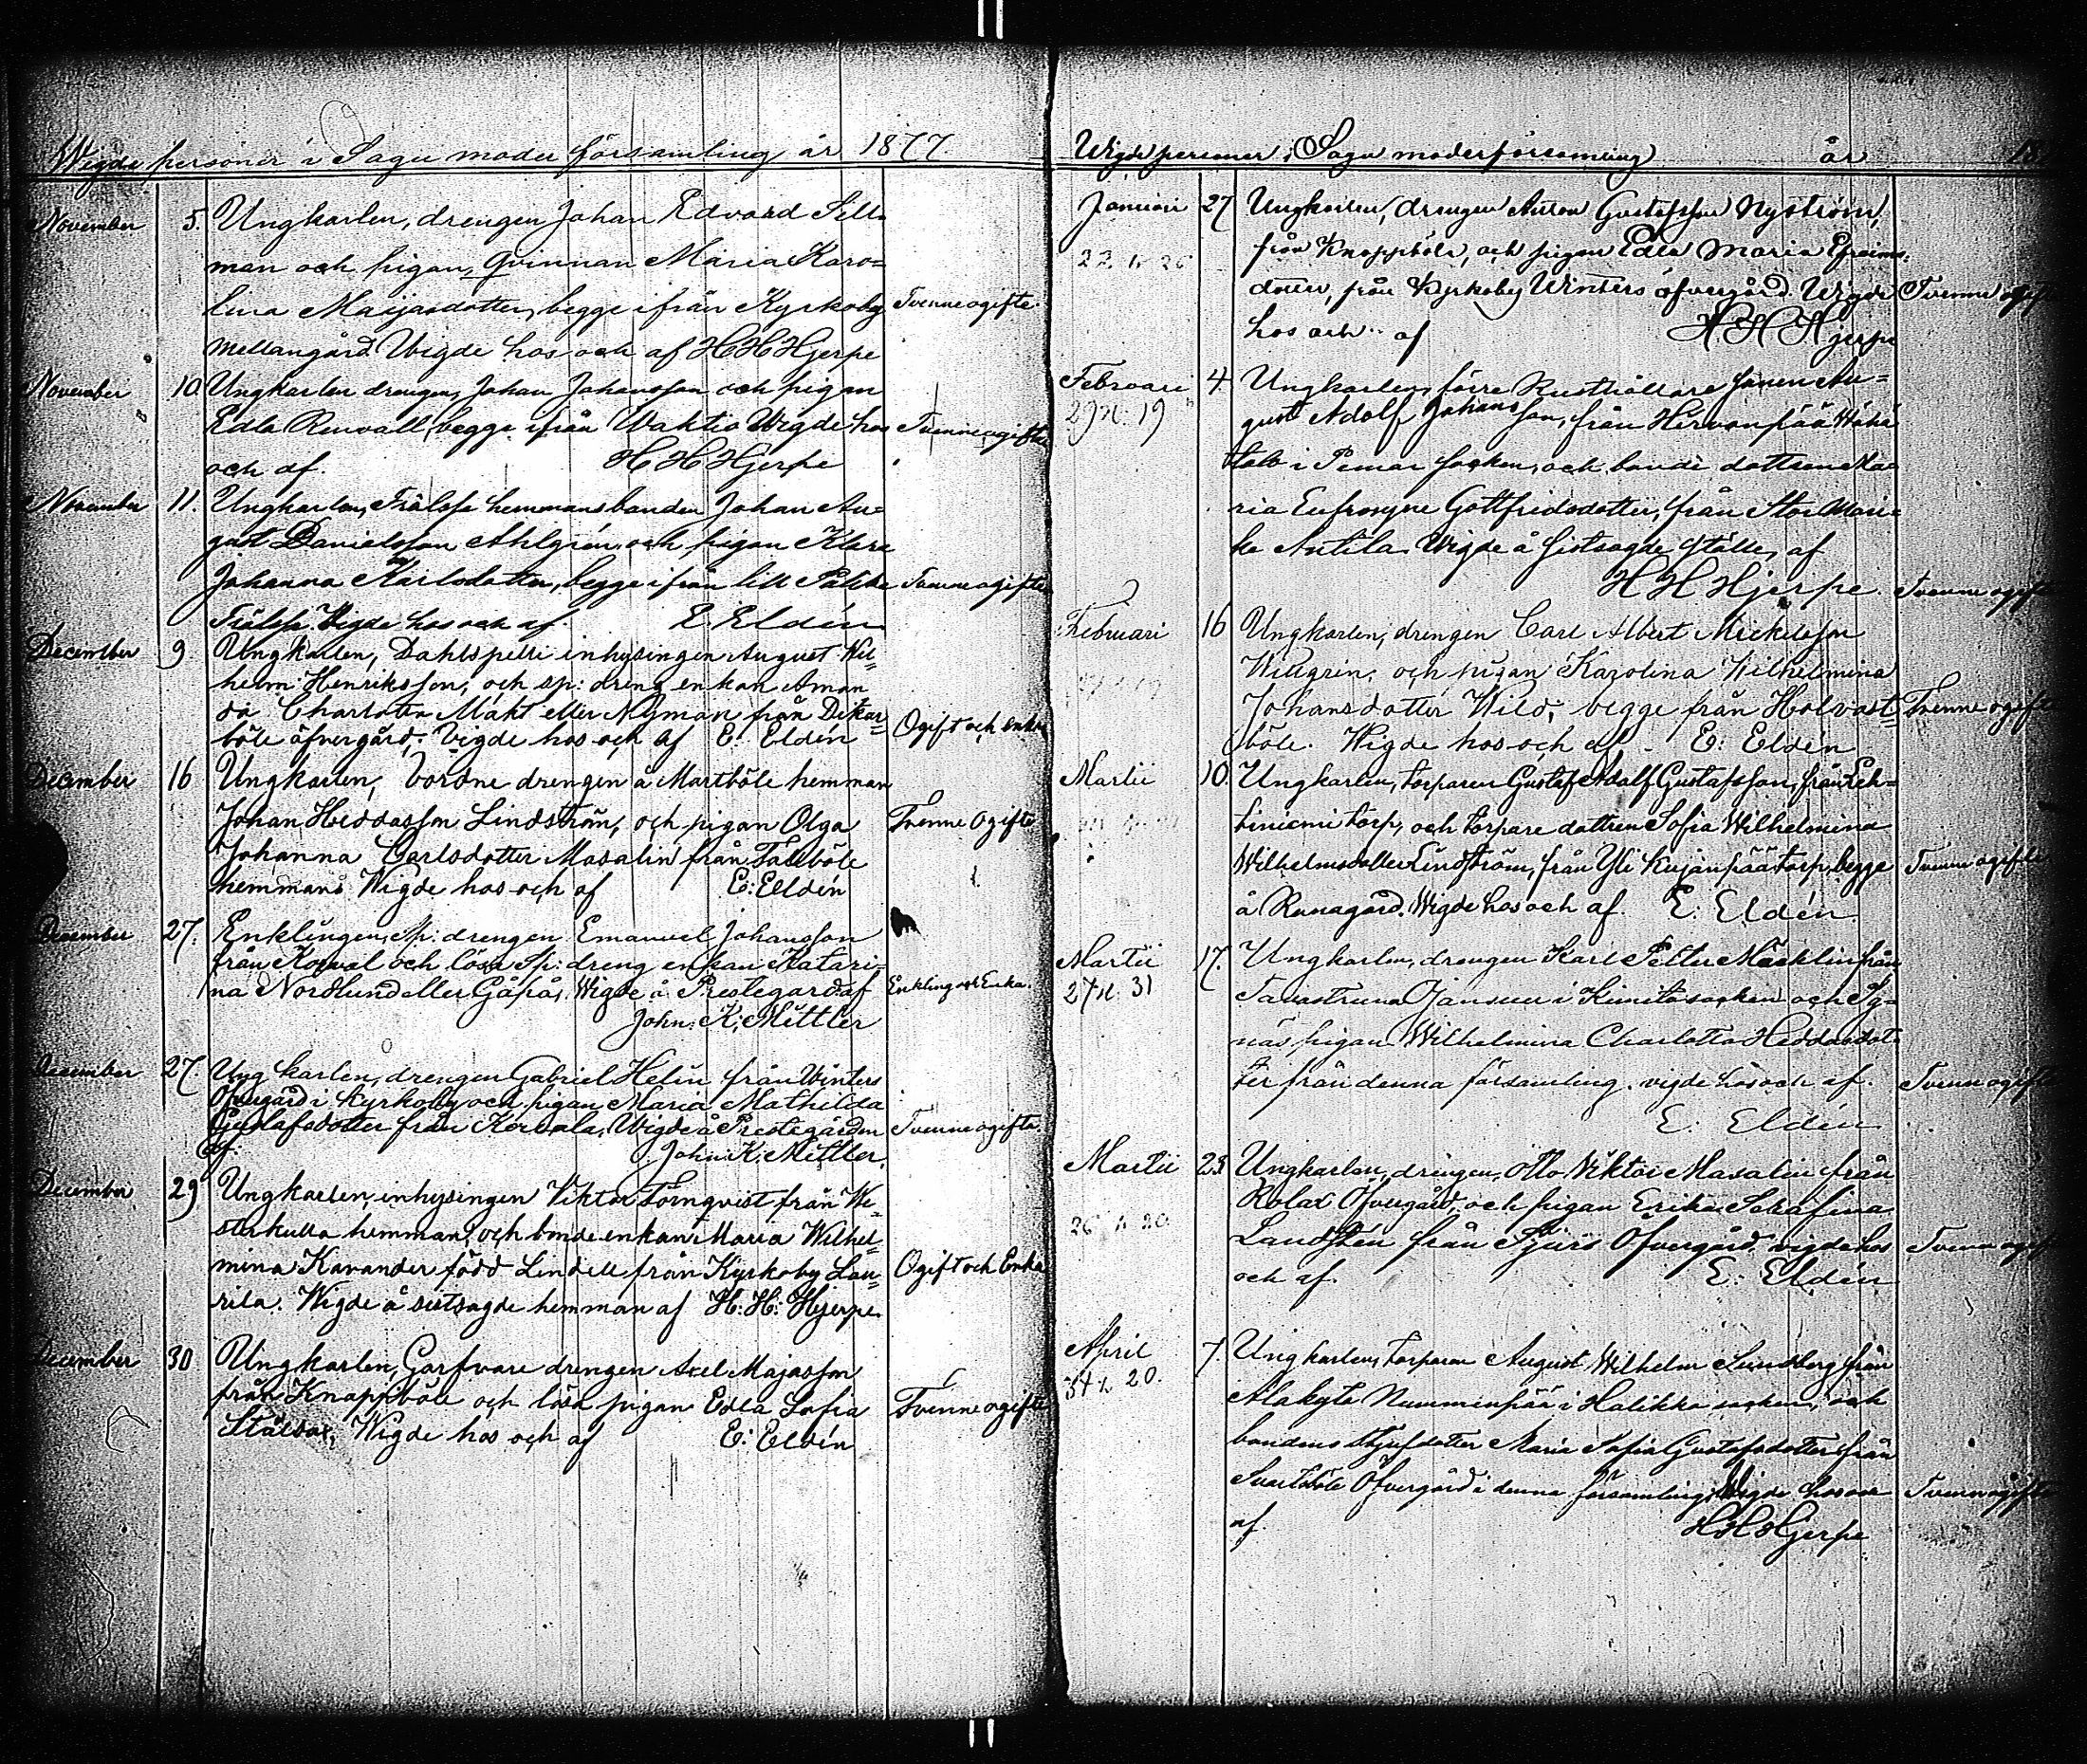 Wigde personer i Sagu moder församling år 1877
November 5. Ungkarlen, drengen Johan Edvard Sell-
man och pigan, qvinnan Maria Karo=
lina Maijasdotter, begge ifrån Kyrkoby Tvenne ogifte.
Mellangård Wigde hos och af H H Hjerpe
November 10. Ungkarlen drengen, Johan Johansson och pigan
Edla Renvall, begge ifrån Waktio Wigde hos Tvenne ogifte
och af. H H Hjerpe
November 11. Ungkarlen, Frälse hemmansbonden Johan Au=
gust Danielsson Ahlgrén och pigan Klara
Johanna Karlsdotter, begge ifrån lill Tvenne ogifte
Frälse. Wigde hos och af. E. Eldén
December 9 Ungkarlen, Dahlspelli inhysingen August Wil=
helm Henriksson, och sp: dreng enkan Aman
da Charlotta Mákt eller Nyman från Dekar=
böle öfvergård, Vigde hos och af E: Eldén Ogift och enka
December 16 Ungkarlen, vordne drengen å Martböle hemman
Johan Heddasson Lindström, och pigan Olga Tvenne Ogifte
Johanna Carlsdotter Masalin från Tallböle
hemman. Wigde hos och af E: Eldén
December 27. Enklingen, Sp: drengen Emanuel Johansson
från Korval och lösa Sp: dreng enkan Katari-
na Nordlund eller Gåpås. Wigde å Prestegård af Enkling och Enka.
John: K: Mittler
December 27. Ungkarlen, drengen Gabriel Helin från Winters
Öfvergård i Kyrkoby och pigan Maria Mathilda
Gustafsdotter från Korvala, Wigde å Prestegården Tvenne ogifte
af: John: K: Mittler.
December 29 Ungkarlen, inhysingen Viktor Törnqvist från We-
sterkulla hemman, och bonde enkan Maria Wilhel=
mina Kavander född Lindell från Kyrkoby Lau= Ogift och Enka
rila. Wigde å sistsagde hemman af H: H: Hjerpe.
December 30 Ungkarlen, Garfvare drengen Axel Majasson
från Knappböle och lösa pigan Edla Sofia Tvenne ogifte
Stålsax, Wigde hos och af E: Eldén
Wigde personer i Sagu moderförsamling år 18
Januari 27 Ungkarlen, drengen Anton Gustafsson Nyström,
22. k 26 från Knappböle, och pigan Edla Maria Efraims-
dotter, från Kyrkoby Winters öfvergård. Wigde Tvenne ogifte
hos och af H H Hjerpe
Februari 4. Ungkarlen, förre Rusthållare sonen Au=
29 k: 19 gust Adolf Johansson, från Hirvonpää
talo i Pemar socken, och bonde dottren Ma=
ria Eufrosyne Gottfridsdotter, från Stor Mari=
ke Antila. Wigde å sistsagde ställe, af
H H Hjerpe. Tvenne ogifte
Februari 16 Ungkarlen, drengen Carl Albert Mickelsson
Willgrén, och pigan Karolina Wilhelmina
Johansdotter Wild, begge från Holvast= Tvenne ogifte
böle. Wigde hos och af E: Eldén
Martii 10. Ungkarlen, torparen Gustaf Adolf Gustafsson, från Leh=
tiniemi torp, och torpare dottren Sofia Wilhelmina
Wilhelmsdotter Lindström, från Yli Kujanpää torp, begge Tvenne ogifte
å Runagård. Wigde hos och af. E: Eldén
Martii 17. Ungkarlen, drengen Karl Petter Mäcklin från
27 k. 31 Tavastruna Jansur i Kimito socken och Sg-
näs pigan Wilhelmina Charlotta Heddasdot-
ter från denna församling. vigde hos och af. Tvenne ogifte
E: Eldén
Martii 23. Ungkarlen, drengen, Otto Viktor Masalin från
Rolax Öfvergård, och pigan Erika Serafina
26 k 20. Landstén från Sjürs Öfvergård. vigde hos Tvenne ogifte
och af. E: Eldén
April 7. Ungkarlen, torparen August Wilhelm Sundberg från
34 k 20. Alakytö Numminpää i Halikko socken, och
bondens Styfdotter Maria Sofia Gustafsdotter från
Svartböle Öfvergård i denna församling. Wigde hos och Tvenne ogifte
af. H H Hjerpe